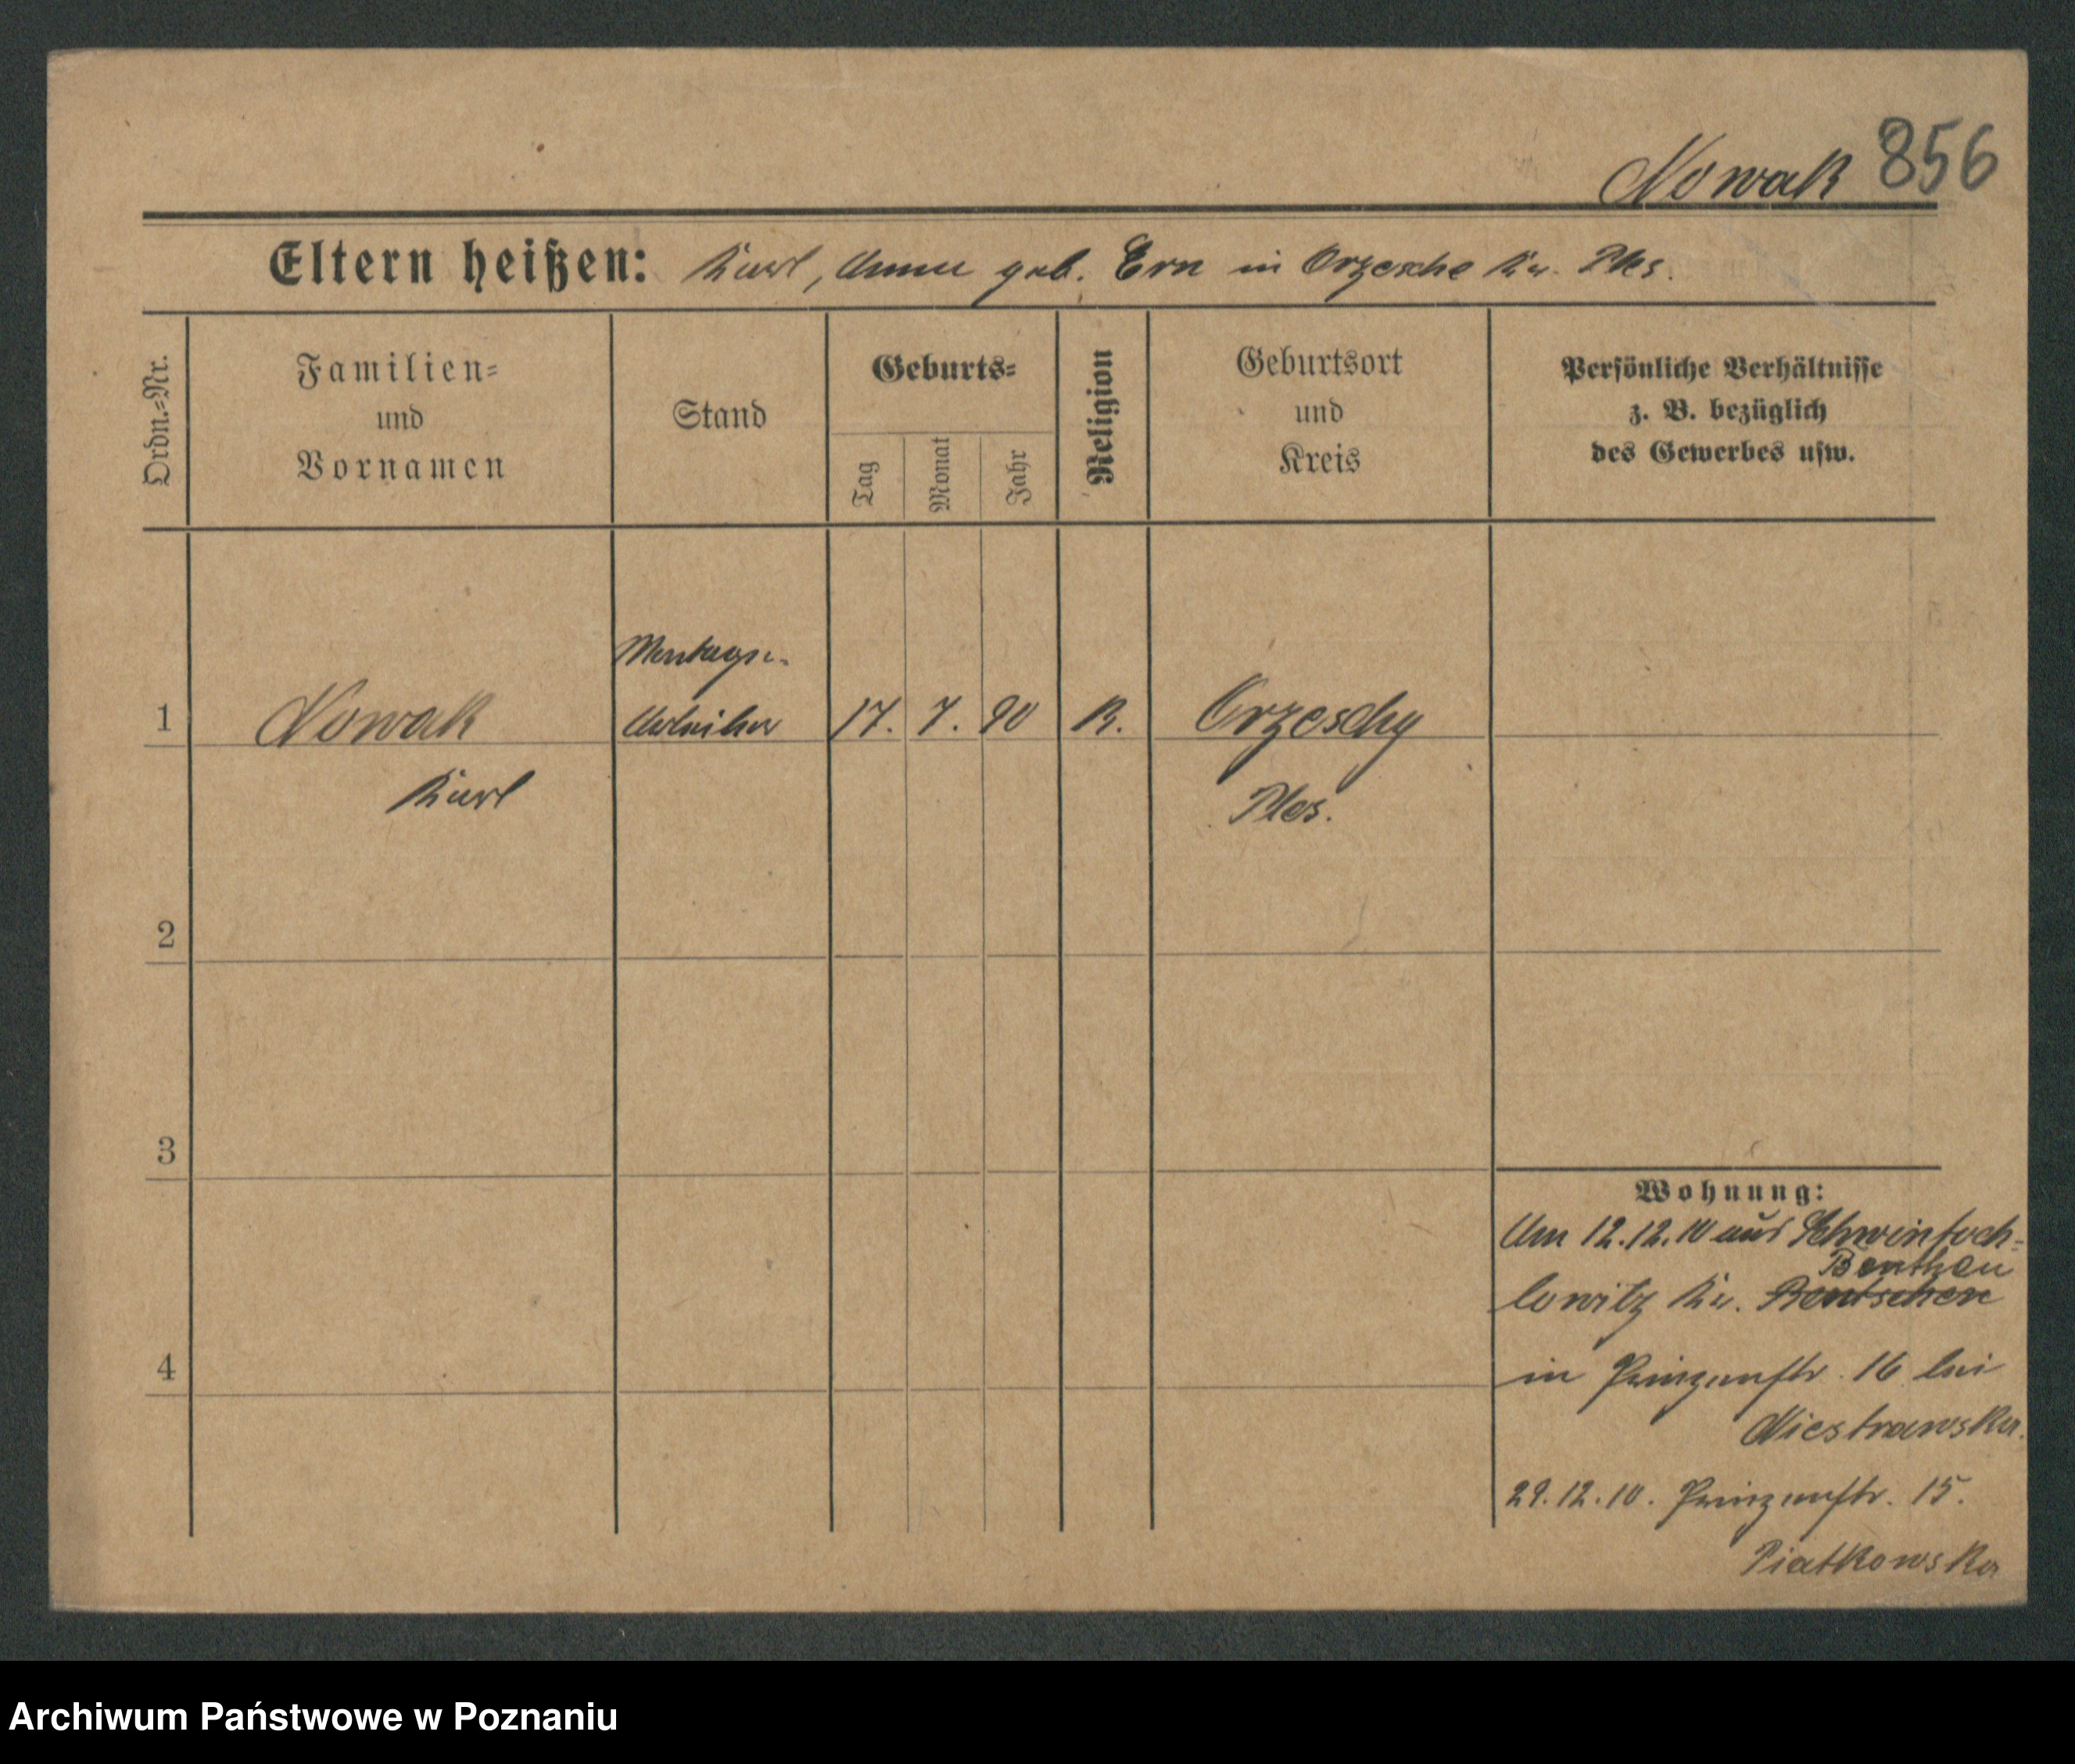 Nowak 856
Eltern heißen: Karl, Anna geb. Ern in Orzesche Kr. Ples.
Ordn.-Nr.
Familien-
und
Vornamen
Stand
Geburts-
Tag
Monat
Jahr
Religion
Geburtsort
und
Kreis
Persönliche Verhältnisse
z. B. bezüglich
des Gewerbes usw.
1 Nowak Arbeiter 17. 7. 90 K. Orzeschy
Karl Ples.
2
3
4
Wohnung:
Am 12.12.10 aus Schwintoch-
Beuthen
lowitz Kr. Bentschen
in Prinzenstr. 16 bei
Niestrawska.
29.12.10. Prinzenstr. 15.
Piatkowska
Archiwum Państwowe w Poznaniu